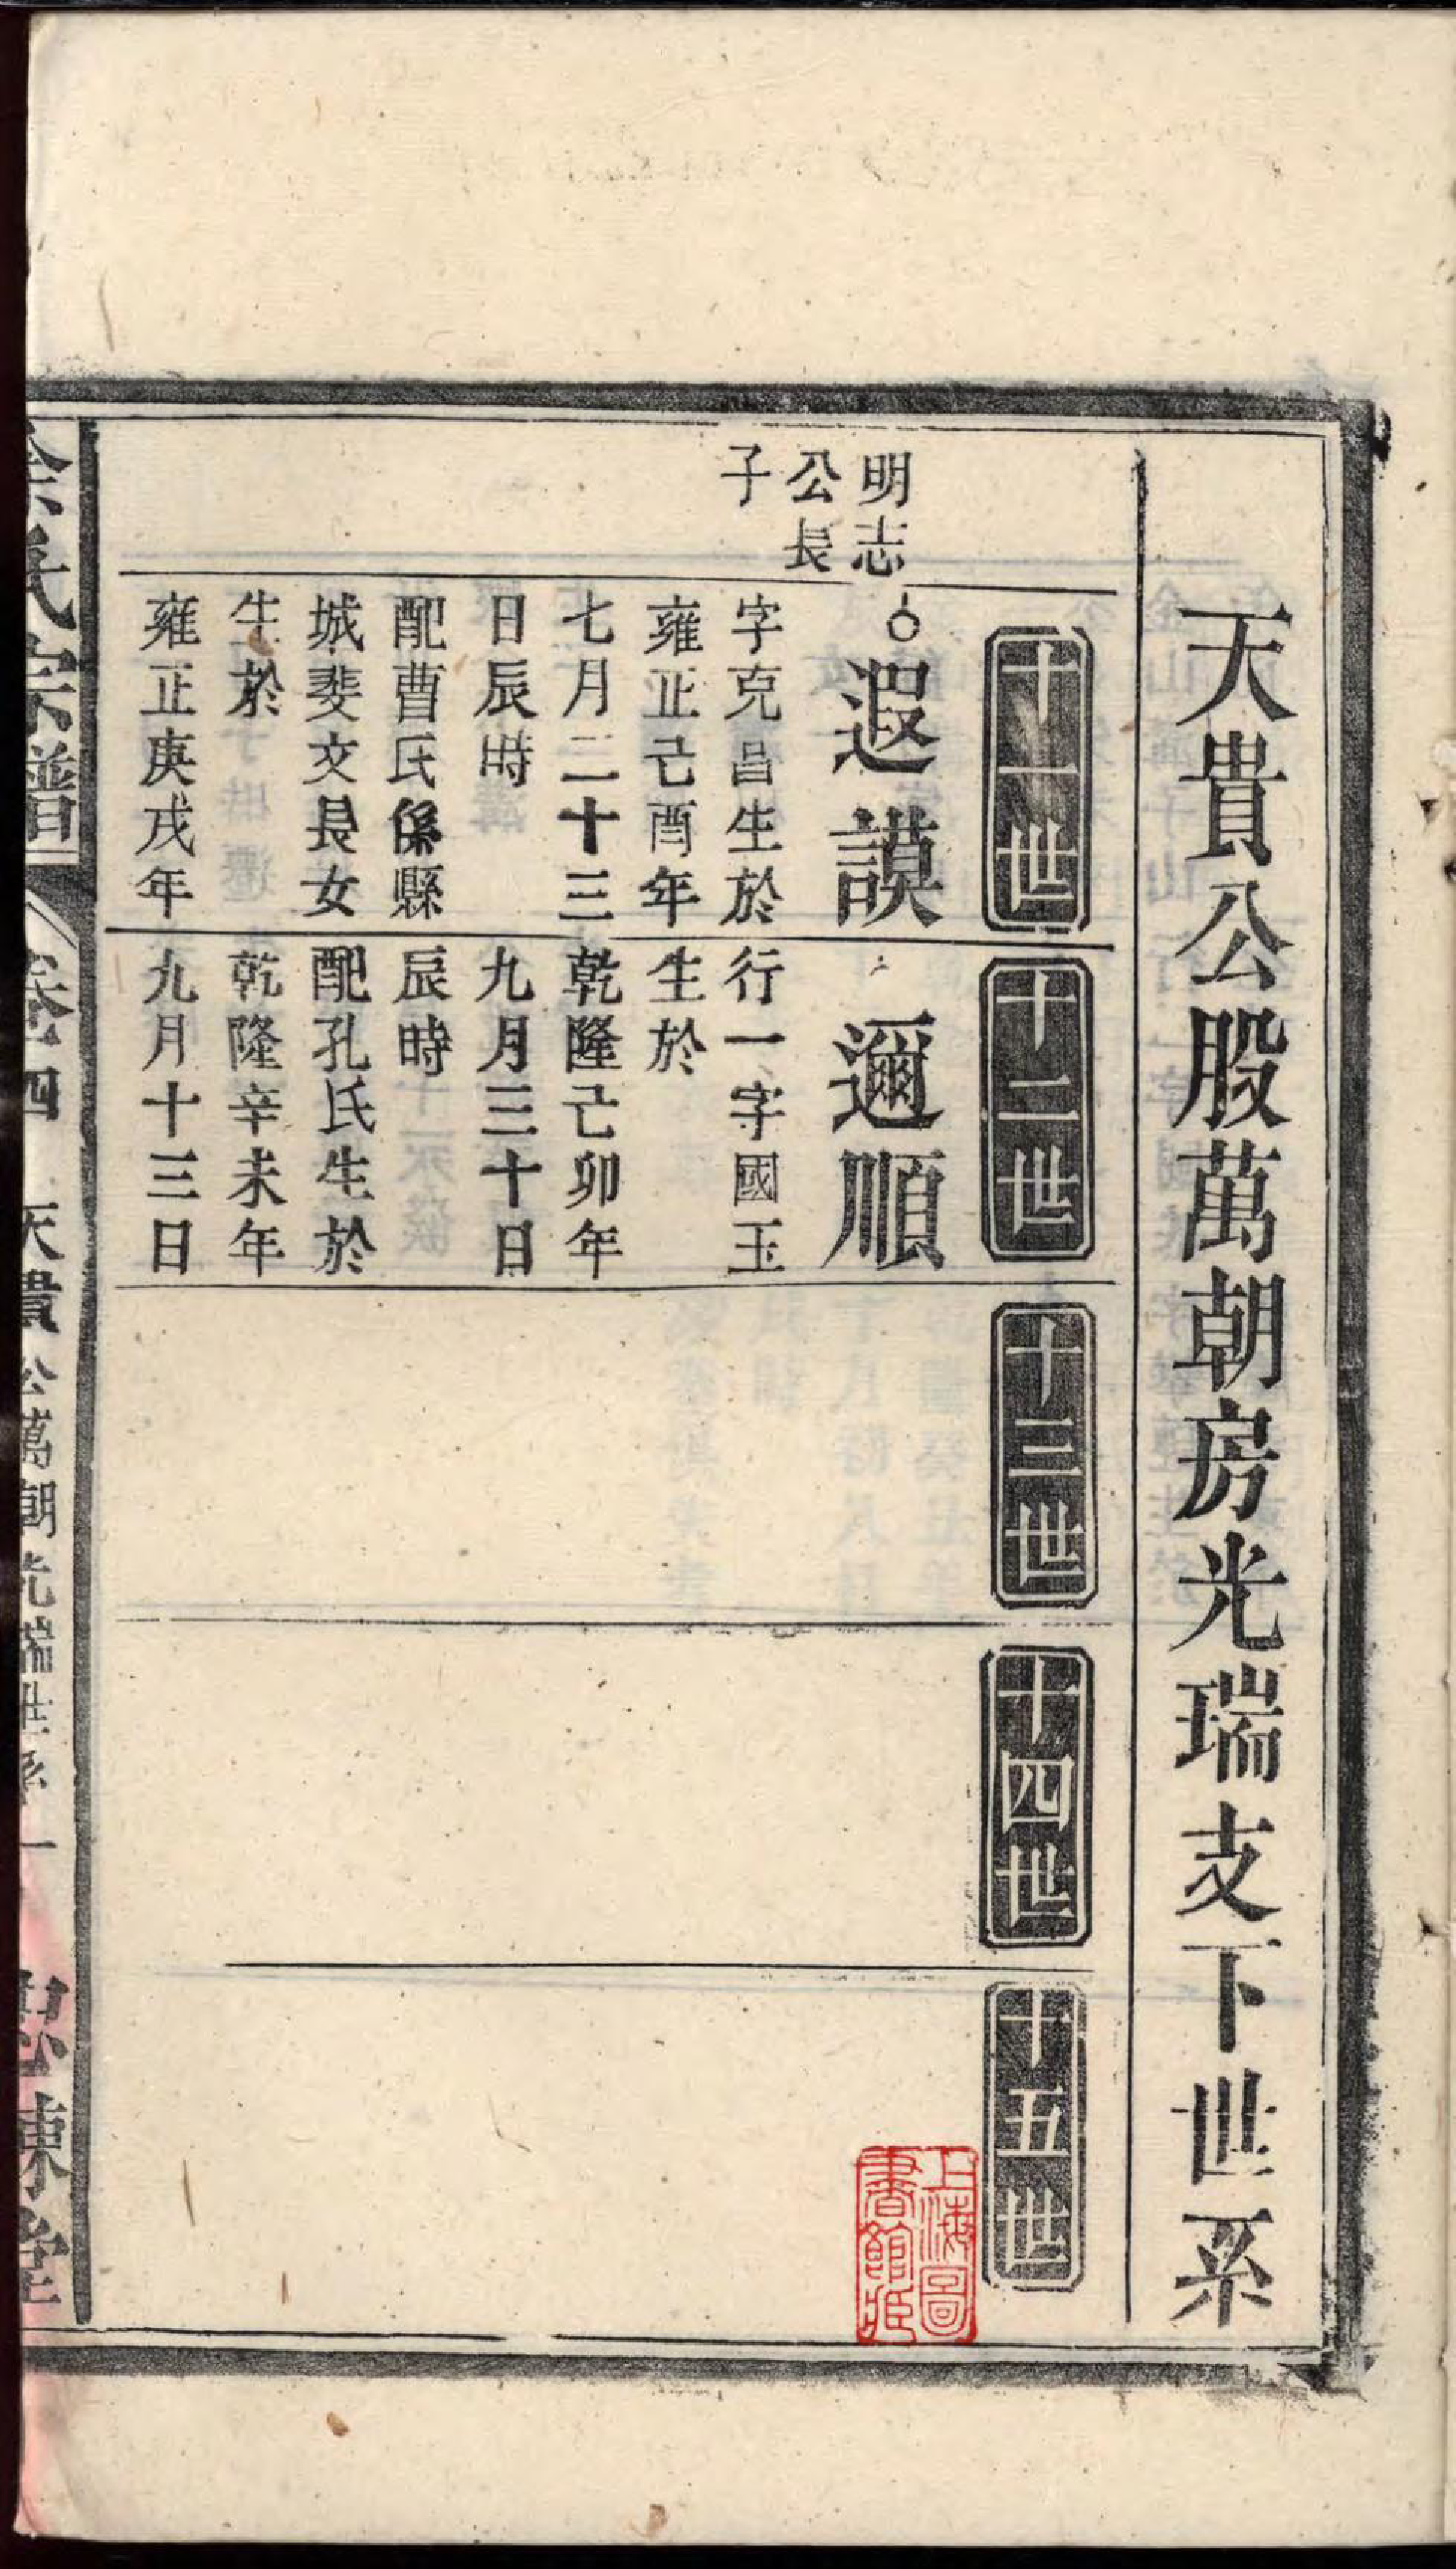 天貴公股萬朝房光瑞支下世系
十一世
十二世
十三世
十四世
十五世
明志
公長
子
遐謨
字克昌生於
雍正己酉年
七月二十三
日辰時
配曹氏係縣
城斐文長女
生於
雍正庚戌年
邇順
行一字國玉
生於
乾隆己卯年
九月三十日
辰時
配孔氏生於
乾隆辛未年
九月十三日
上海圖
書館藏
氏宗譜
卷四
天貴公萬朝光瑞世系
一